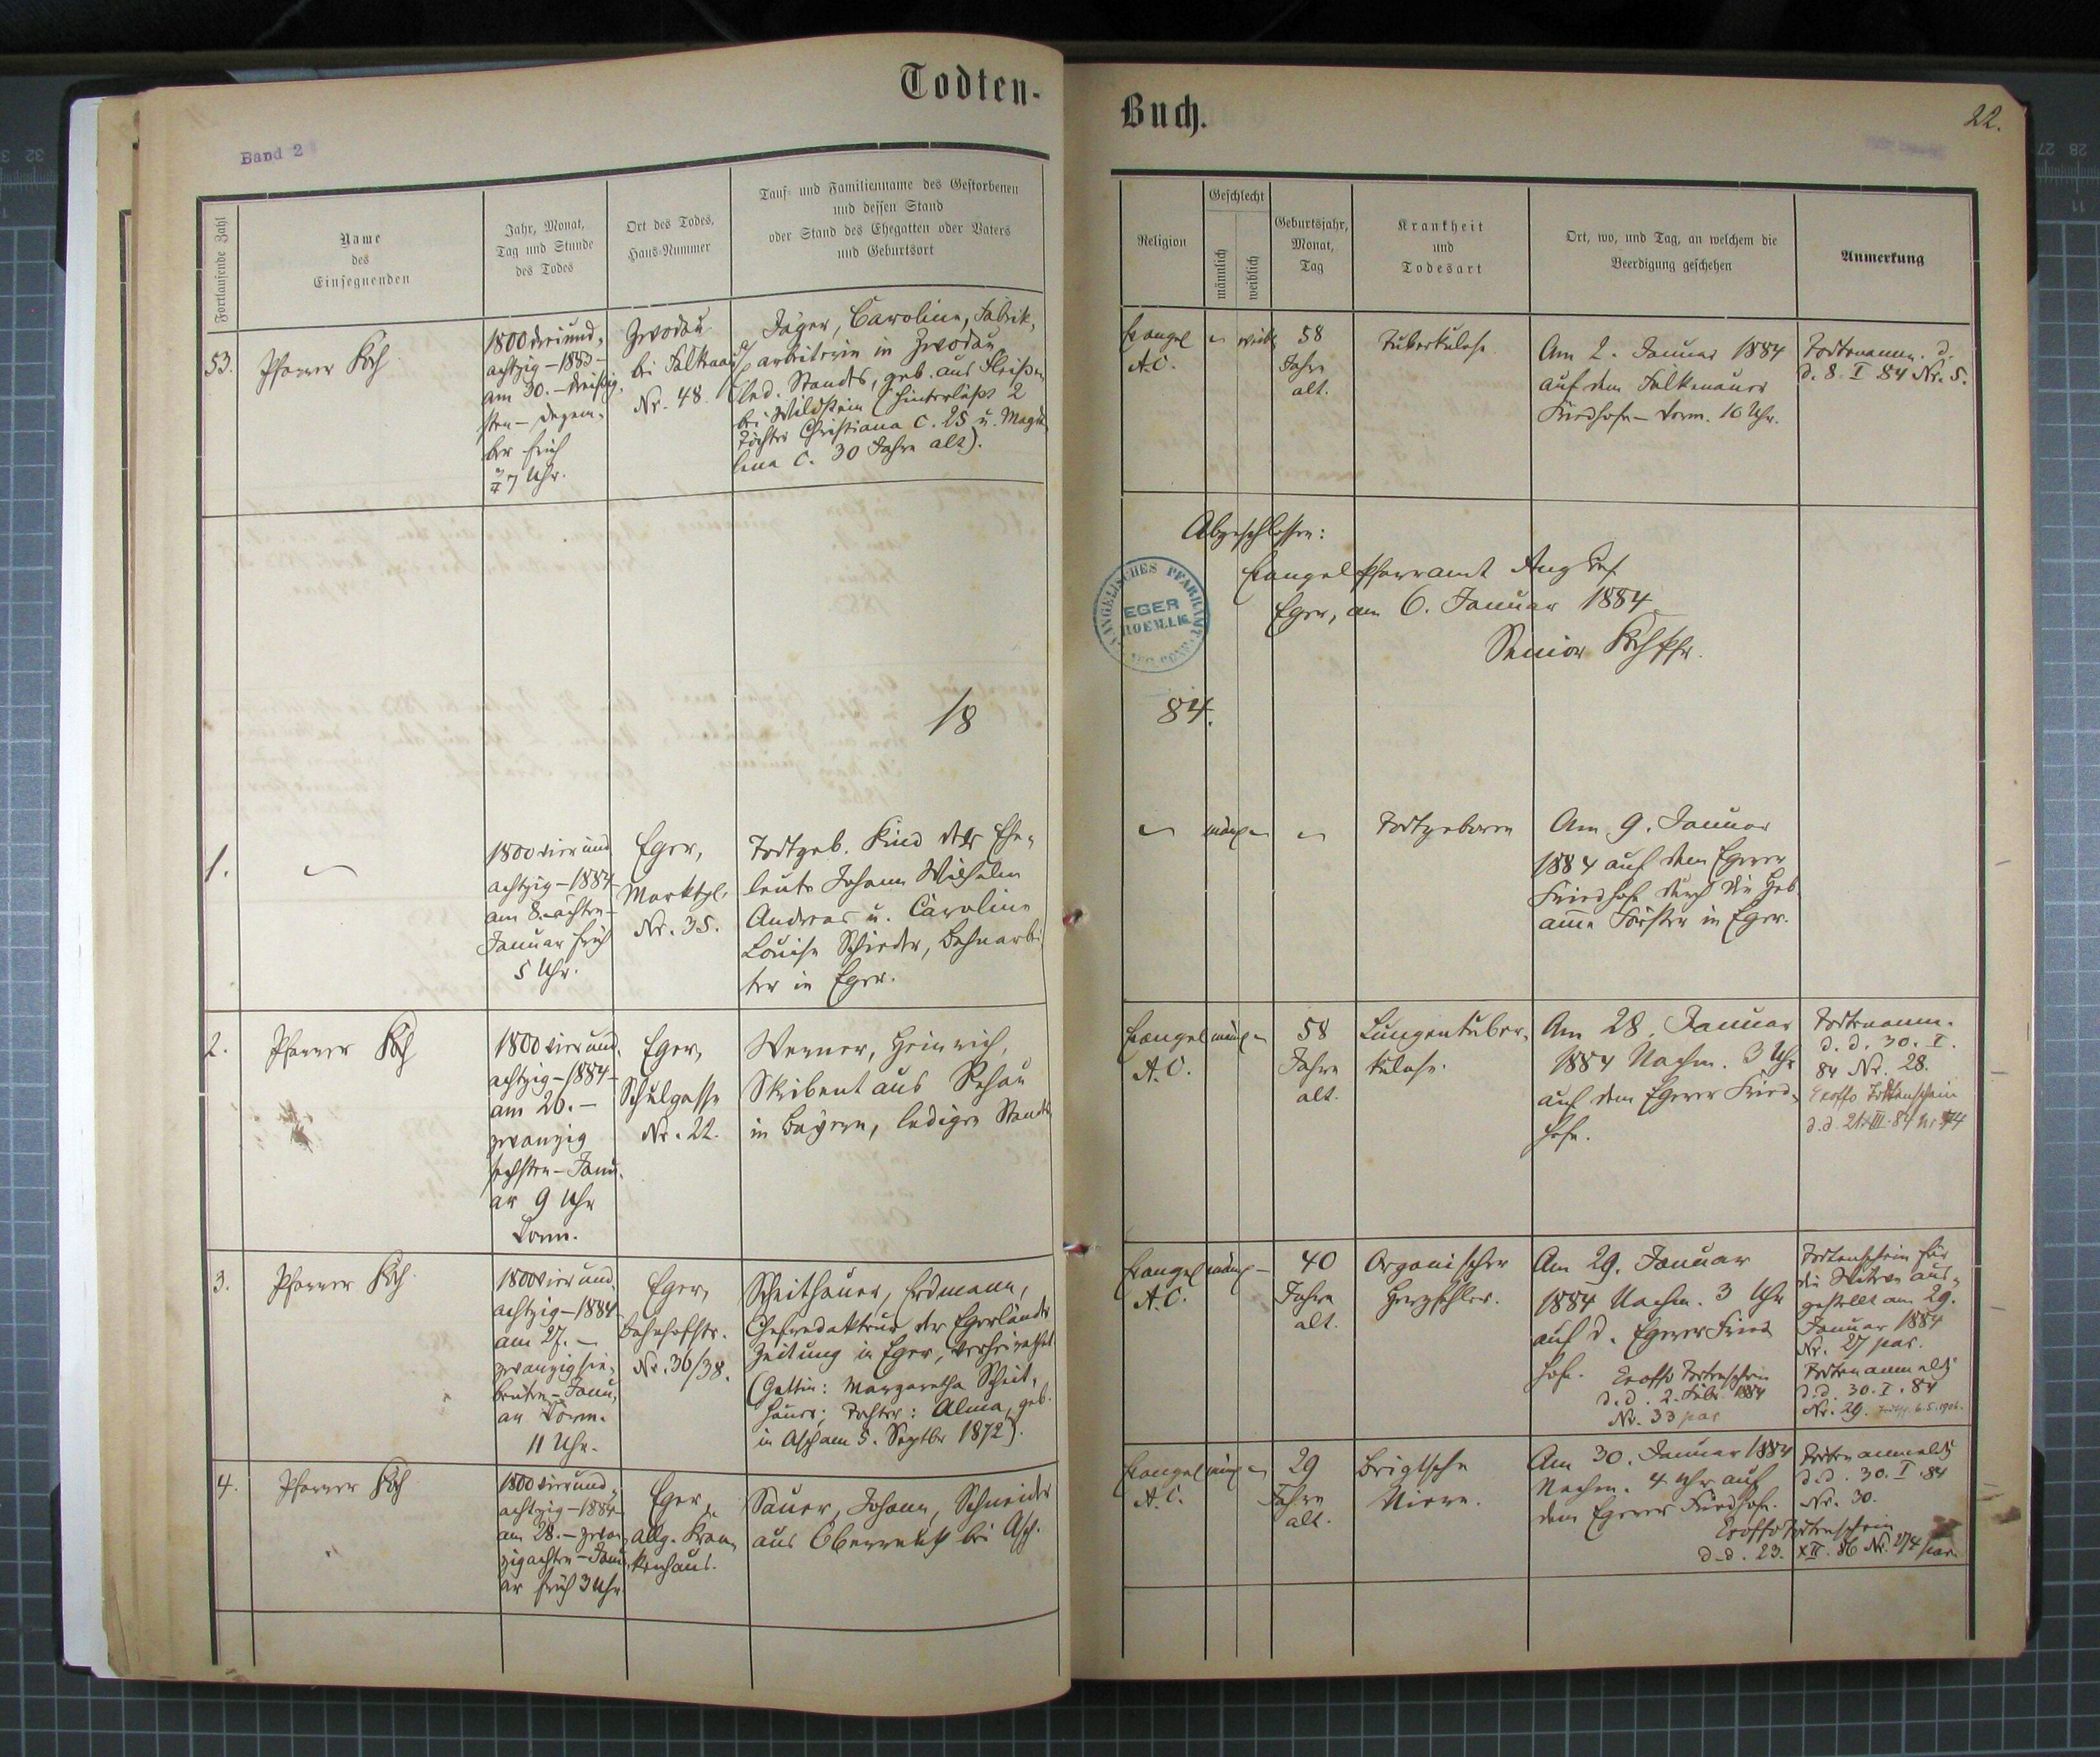 Todten-
Band 2
Fortlaufende Zahl
Name
des
Einsegnenden
Jahr, Monat,
Tag und Stunde
des Todes
Ort des Todes,
Haus-Nummer
Tauf- und Familienname des Gestorbenen
und dessen Stand
oder Stand des Ehegatten oder Vaters
und Geburtsort
53.
Pfarrer Koch
1800 dreiund,
achtzig – 1883 –
am 30. – dreißig,
sten – Dezem,
ber früh
7 Uhr.
Zwodau
bei Falkenau
Nr. 48.
Jäger, Caroline, Fabrik,
arbeiterin in Zwodau,
led. Standes, geb. aus Fleißen
bei Wildstein (hinterläßt 2
Töchter Christiana c. 25 u. Magda
lina c. 30 Jahre alt).
18
1.
1800 vierund
achtzig – 1884 –
am 8. achten –
Januar früh
5 Uhr.
Eger,
Marktpl.
Nr. 35.
Todtgeb. Kind der Ehe,
leute Johann Wilhelm
Andreas u. Caroline
Louise Schieder, Bahnarbei
ter in Eger.
2.
Pfarrer Koch
1800 vierund,
achtzig – 1884 –
am 26. –
zwanzig
sechsten – Janu,
ar 9 Uhr
Vorm.
Eger,
Schulgasse
Nr. 22.
Werner, Heinrich,
Skribent aus Rehau
in Bayern, ledigen Standes
3.
Pfarrer Koch
1800 vierund,
achtzig – 1884
am 27. –
zwanzig sie,
benten – Janu,
ar Vorm.
11 Uhr.
Eger,
Bahnhofstr.
Nr. 36/38.
Scheithauer, Erdmann,
Chefredakteur der Egerländer
Zeitung in Eger, verheirathet
(Gattin: Margaretha Scheit,
hauer; Tochter: Alma, geb.
in Asch am 5. Septbr 1872).
4.
Pfarrer Koch
1800 vierund,
achtzig – 1884
am 28. – zwan,
zigachten – Janu
ar früh 3 Uhr.
Eger,
allg. Kran,
kenhaus.
Sauer, Johann, Schneider
aus Oberreuth bei Asch.
Buch.
22.
Religion
Geschlecht
männlich
weiblich
Geburtsjahr,
Monat,
Tag
Krankheit
und
Todesart
Ort, wo, und Tag, an welchem die
Beerdigung geschehen
Anmerkung
Evangel
A.C.
weibl
58
Jahre
alt.
Tuberkulose
Am 2. Januar 1884
auf dem Falkenauer
Friedhofe – Vorm. 10 Uhr.
Todtenanm. d.
d. 8. I 84 Nr. 5.
Abgeschlossen:
Evangel Pfarramt Aug
Eger, am 6. Januar 1884
Senior Koch Pfr.
EVANGELISCHES PFARRAMT
EGER
BOEHMEN
AUG. CONF.
84.
männl
Todtgeboren
Am 9. Januar
1884 auf dem Egerer
Friedhofe durch die Heb
amme Förster in Eger.
Evangel
A.C.
männl
58
Jahre
alt.
Lungentuber,
kulose.
Am 28. Januar
1884 Nachm. 3 Uhr
auf dem Egerer Fried,
hofe.
Todtenanm.
d. d. 30. I.
84 Nr. 28.
Exoffo Todtenschein
d.d. 21. III. 84 Nr 74
Evangel
A.C.
männl
40
Jahre
alt.
Organischer
Herzfehler.
Am 29. Januar
1884 Nachm. 3 Uhr
auf d. Egerer Fried
hofe.
Exoffo Todtenschein
d.d. 2. Febr. 1884
Nr. 33 par
Todtenschein für
die Witwe aus,
gestellt am 29.
Januar 1884
Nr. 27 par.
Todtenanmeldg
d.d. 30. I. 84
Nr. 29.
Evangel
A.C.
männl
29
Jahre
alt.
Brigtsche
Niere.
Am 30. Januar 1884
Nachm. 4 Uhr auf
dem Egerer Friedhofe.
Todtenanmeldg
d.d. 30. I. 84
Nr. 30.
Exoffo Todtenschein
d.d. 23. XII. 86 Nr. 274 par.